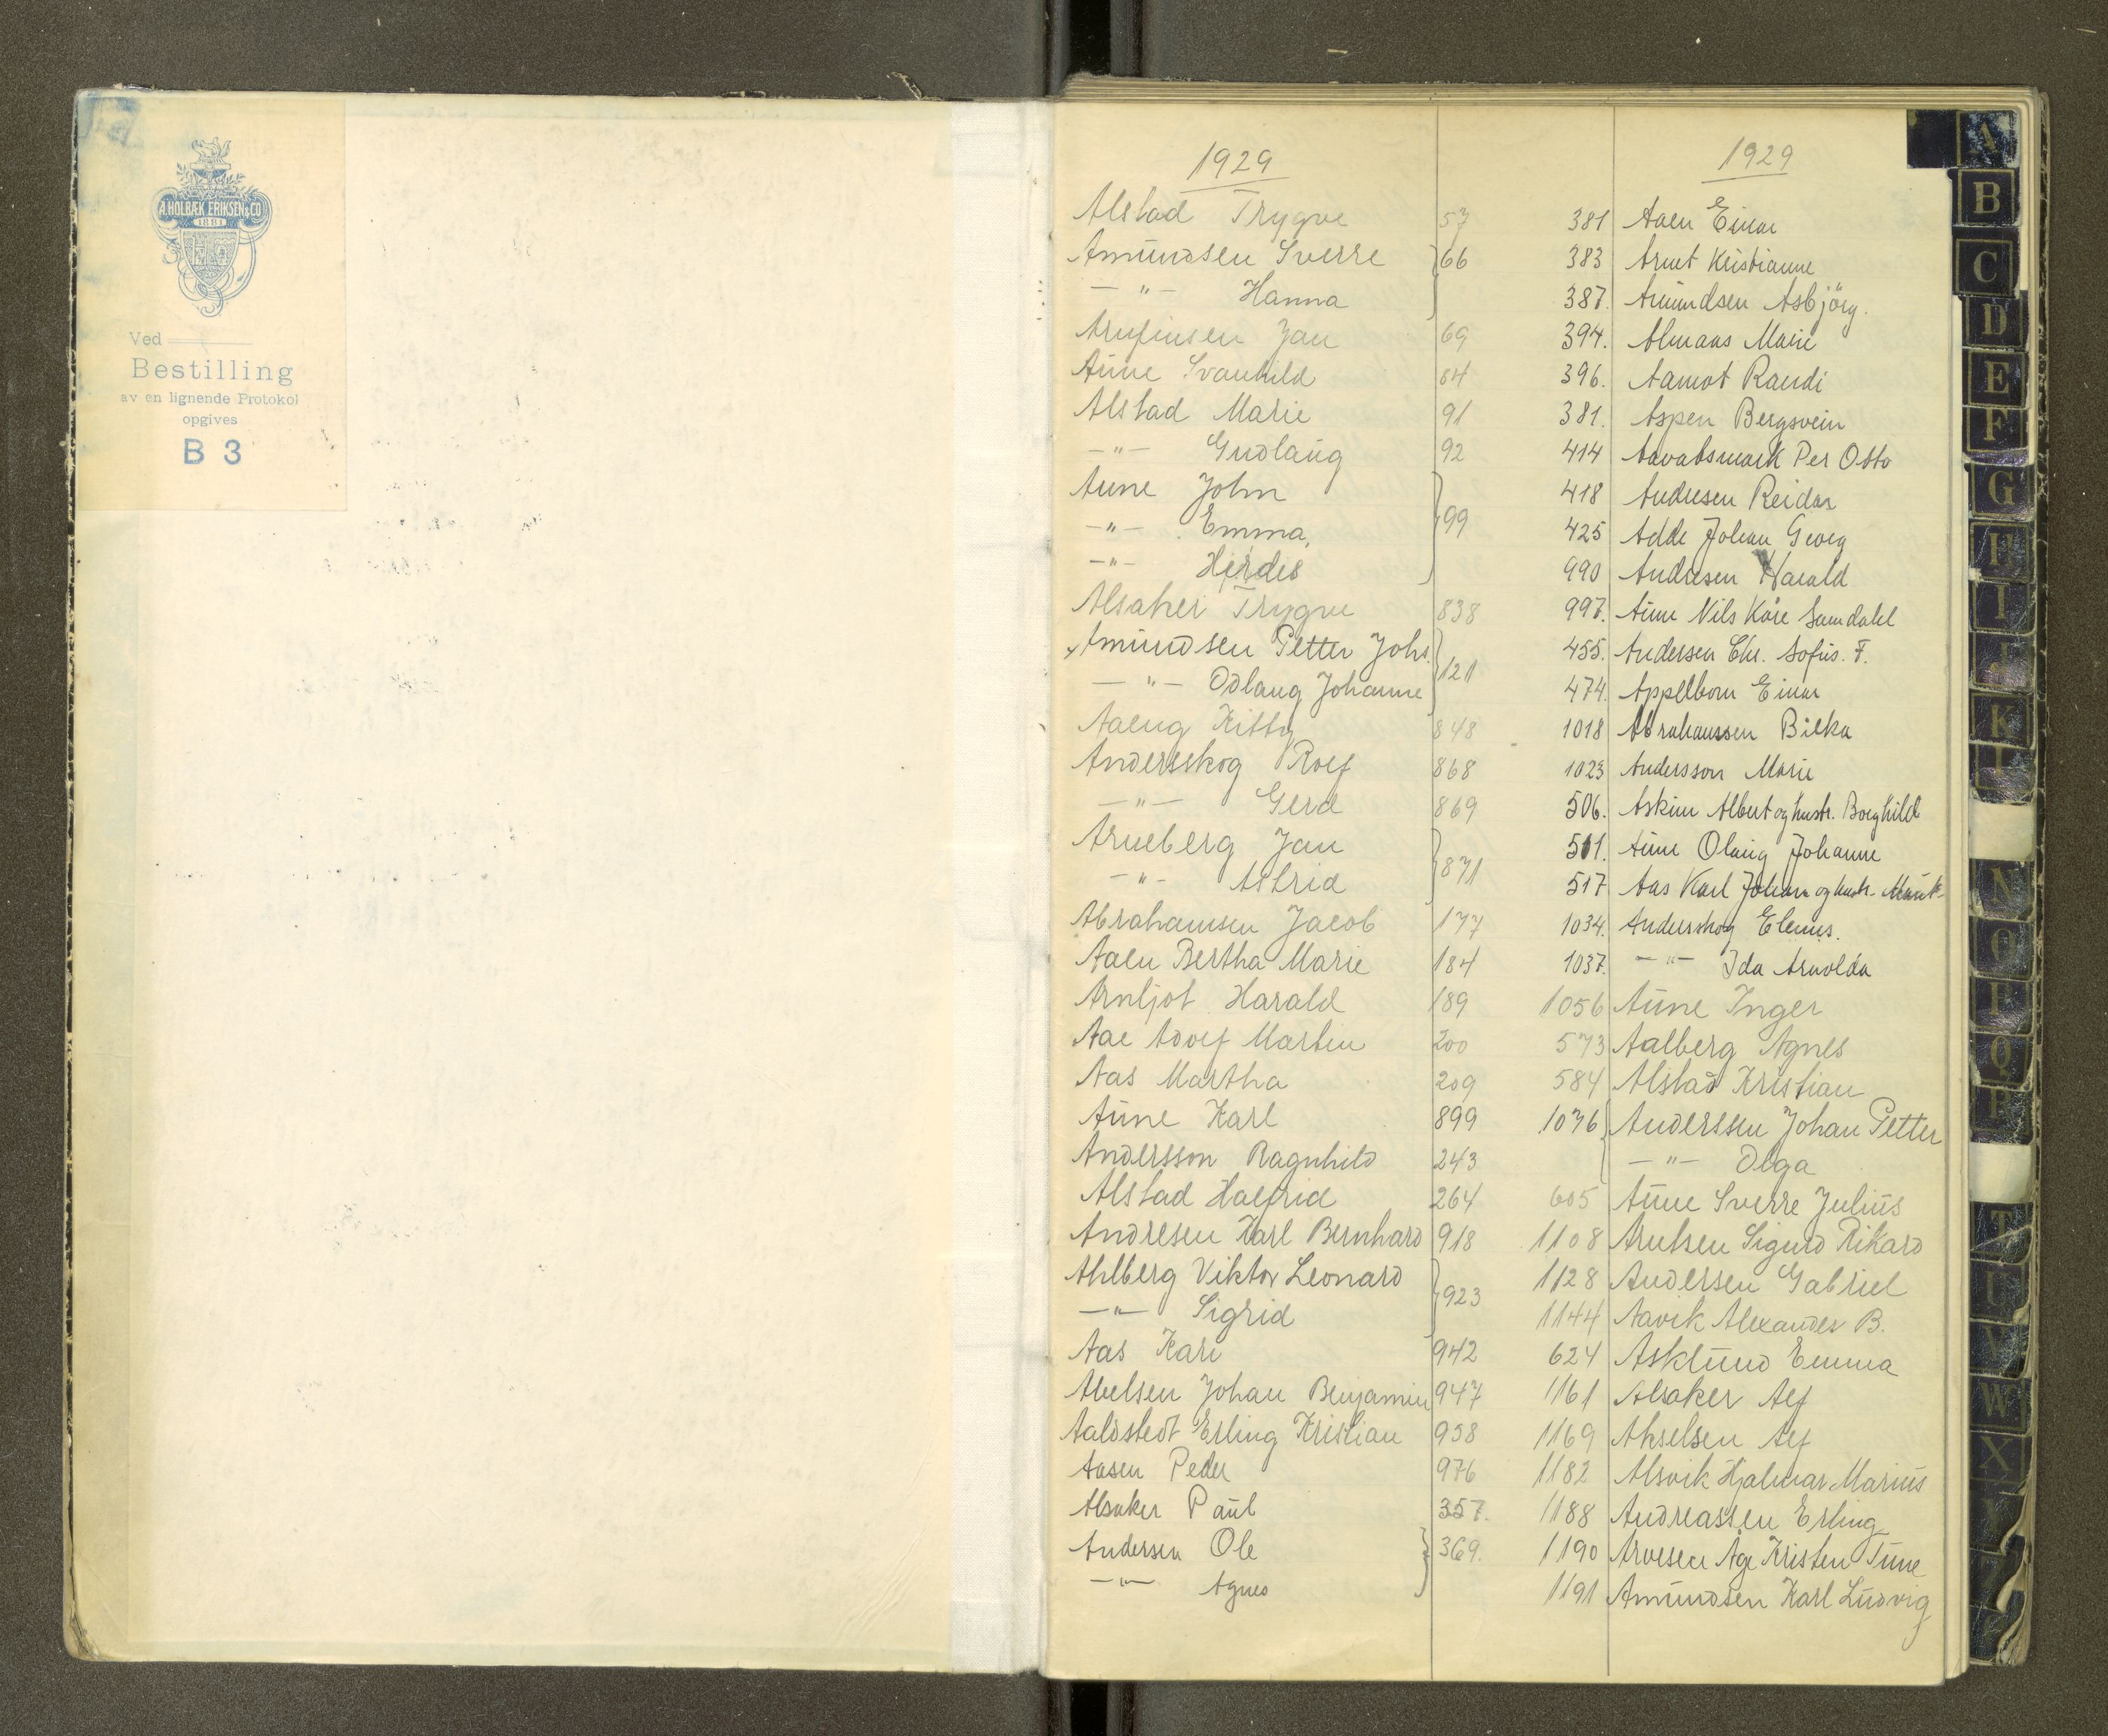 A. HOLBÆK ERIKSEN & CO
1881
Ved
Bestilling
av en lignende Protokol
opgives
B 3
1929
Alstad Trygve 57
Amundsen Sverre } 66
—"— Hanna
Arnfinsen Jan 69
Aune Svanhild 84
Alstad Marie 91
—"— Gudlaug 92
Aune John
—"— Emma, } 99
—"— Herdis
Alsaker Trygve 838
Amundsen Petter Johs. } 121
—"— Odlaug Johanne
Aaeng Kitty 848
Andersskog Rolf 868
—"— Gerd 869
Arneberg Jan } 871
—"— Astrid
Abrahamsen Jacob 177
Aalen Bertha Marie 184
Arnljot Harald 189
Aae Adolf Martin 200
Aas Martha 209
Aune Karl 899
Andersson Ragnhild 243
Alstad Halfrid 264
Andresen Karl Bernhard 918
Ahlberg Viktor Leonard } 923
—"— Sigrid
Aas Kari 942
Abelsen Johan Benjamin 947
Aaldstedt Erling Kristian 958
Aasen Peder 976
Alsaker Paul 357.
Andersen Ole } 369.
—"— Agnes
1929
381 Aaen Einar
383 Arnet Kristianne
387. Amundsen Asbjörg.
394. Almaas Marie
396. Aamot Randi
381. Aspen Bergsvein
414 Aavatsmark Per Otto
418 Andresen Reidar
425 Adde Johan Georg
990 Andresen Harald
997. Aune Nils Kåre Sumdahl
455. Andersen Chr. Sofus. F.
474. Appelbom Einar
1018 Abrahamssen Bilka
1023 Andersson Marie
506. Askim Albert og hustr. Borghild
511. Aune Olaug Johanne
517 Aas Karl Johan og hustr.
1034. Anderskog Elenus.
1037. —"— Ida Arnolda
1056 Aune Inger
573 Aalberg Agnes
584 Alstad Kristian
1076 { Anderssen Johan Petter
—"— Olga
605 Aune Sverre Julius
1108 Arntsen Sigurd Rikard
1128 Andersen Gabriel
1144 Aavik Alexander B.
624 Asklund Emma
1161 Alsaker Alf
1169 Akselsen Alf
1182 Alsvik Hjalmar Marius
1188 Andreassen Erling
1190 Arvesen Åge Kristen Tune
1191 Amundsen Karl Ludvig
A
B
C
D
E
F
G
H
I
J
K
L
N
O
P
Q
R
T
U
V
W
X
Y
Z